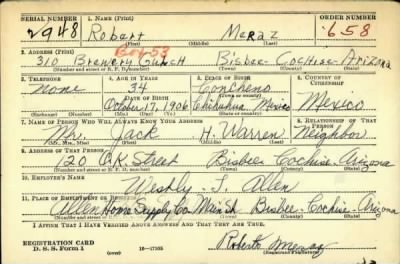 SERIAL NUMBER 1. NAME (Print) ORDER NUMBER
2948 Robert Meraz 658
(First) (Middle) (Last)
2. ADDRESS (Print) Box 53
310 Brewery Gulch Bisbee-Cochise-Arizona
3. TELEPHONE 4. AGE IN YEARS 5. PLACE OF BIRTH 6. COUNTRY OF CITIZENSHIP
none 34 Concheno
DATE OF BIRTH
October 17, 1906 Chihuahua Mexico Mexico
(Exchange) (Number) (Mo.) (Day) (Yr.) (State or country)
7. NAME OF PERSON WHO WILL ALWAYS KNOW YOUR ADDRESS 8. RELATIONSHIP OF THAT PERSON
Mr. Jack H. Warren Neighbor
(Mr., Mrs., Miss) (First) (Middle) (Last)
9. ADDRESS OF THAT PERSON
120 O.K. Street Bisbee Cochise-Arizona
(Number and street or R. F. D. number) (Town) (County) (State)
10. EMPLOYER'S NAME
Westly-J. Allen
11. PLACE OF EMPLOYMENT OR BUSINESS
Allen Home Supply Co Main St. Bisbee-Cochise-Arizona
(Number and street or R. F. D. number) (Town) (County) (State)
I AFFIRM THAT I HAVE VERIFIED ABOVE ANSWERS AND THAT THEY ARE TRUE.
REGISTRATION CARD
D. S. S. Form 1 (over) 16-17105 Roberto Meraz